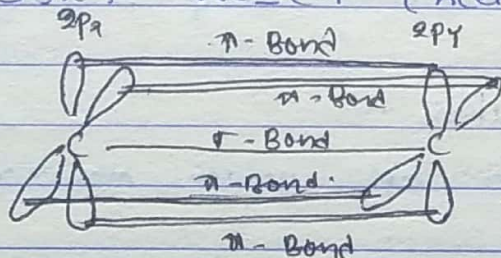 2px 2py
π-Bond
π-Bond
C σ-Bond C
π-Bond.
π-Bond